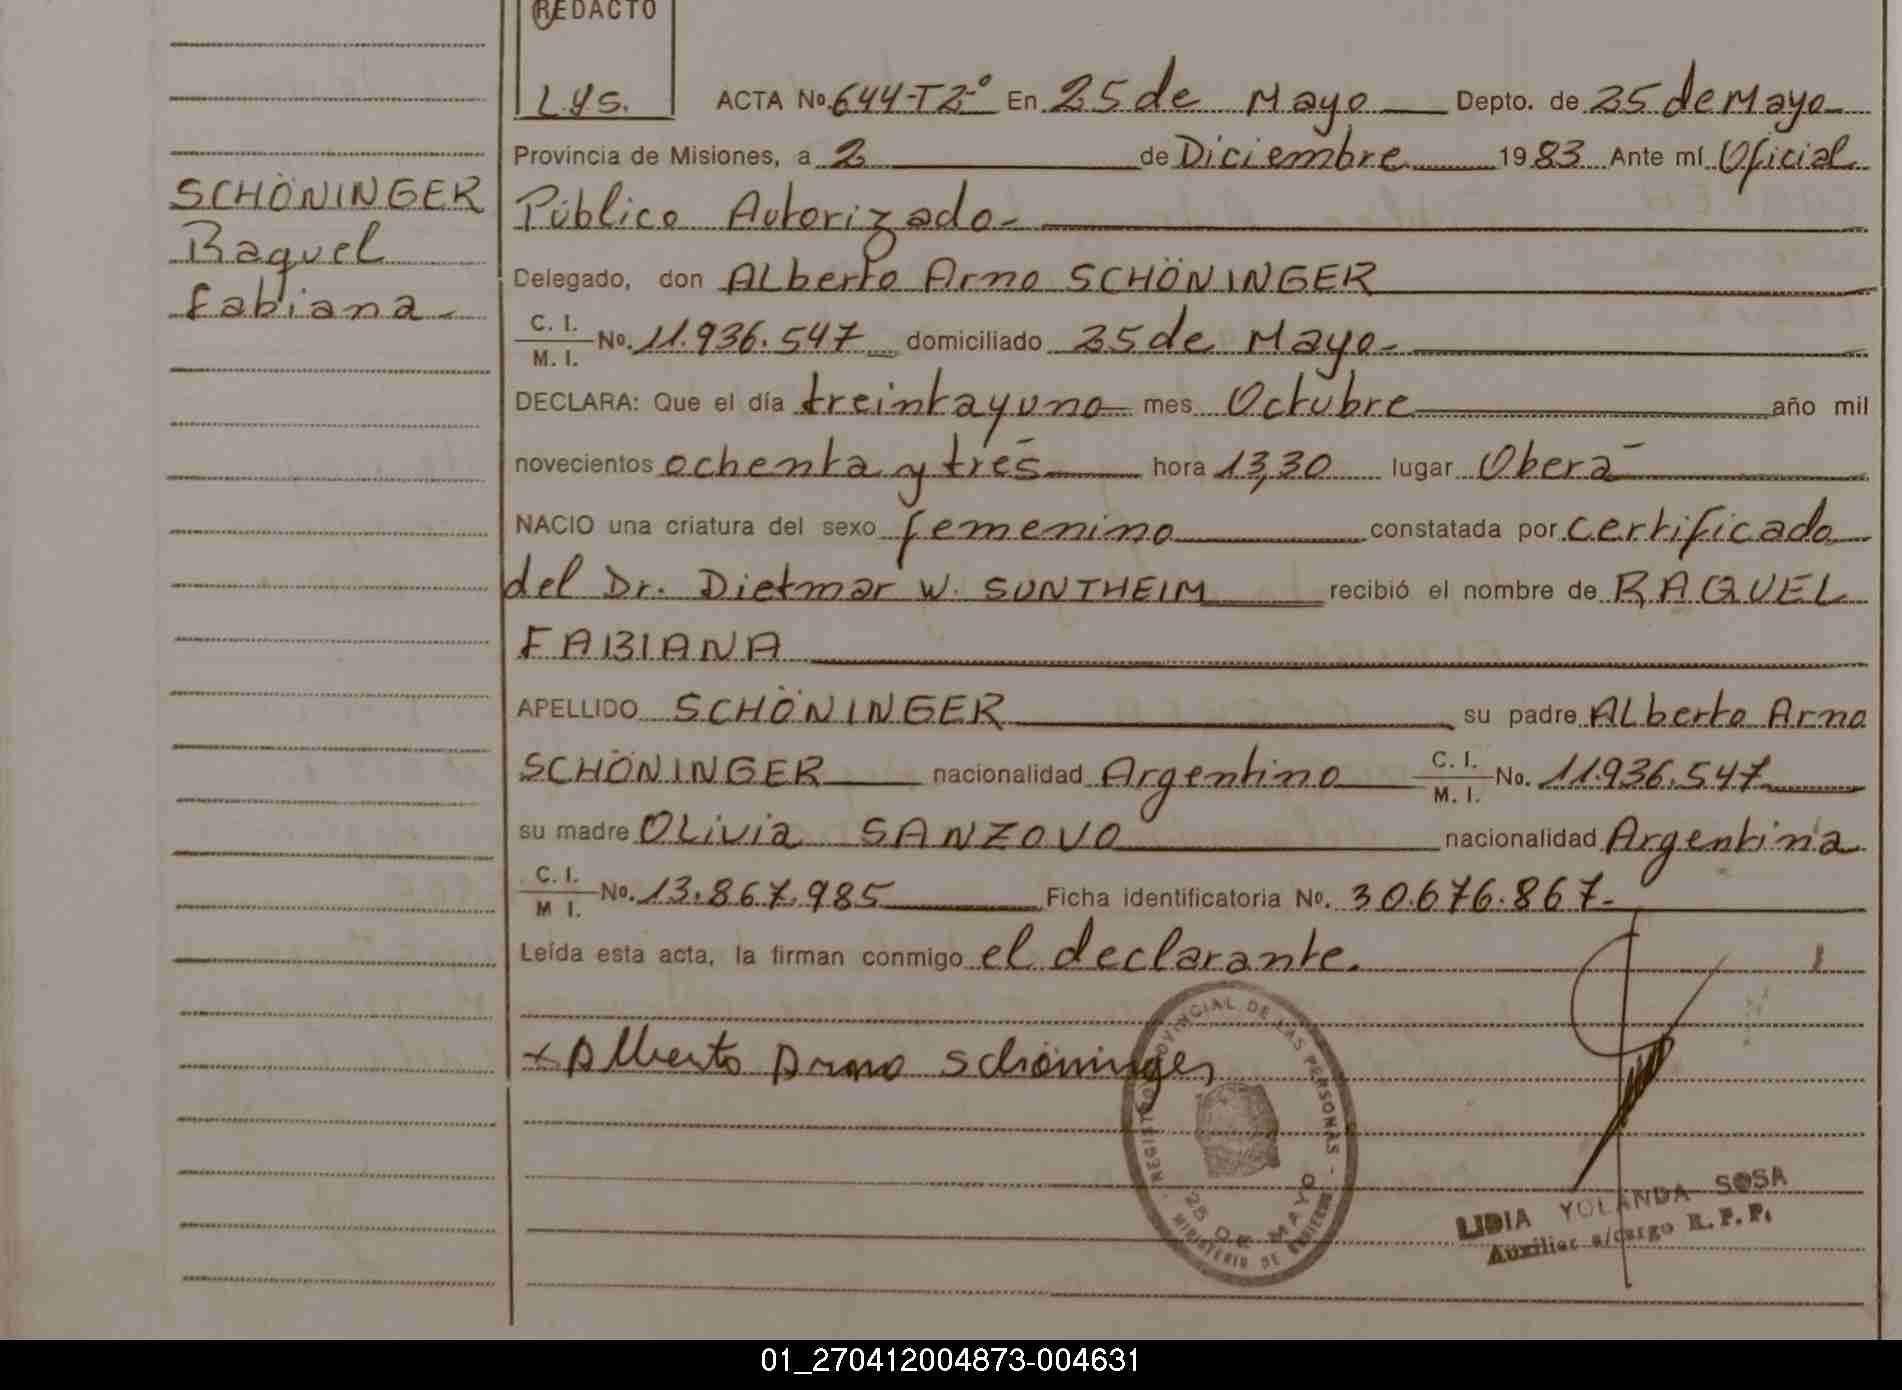 REDACTO
L.y.s.
ACTA No. 644-T2º En 25 de Mayo Depto. de 25 de Mayo
Provincia de Misiones, a 2 de Diciembre 1983 Ante mí Oficial
SCHÖNINGER
Raquel
Fabiana.-
Público Autorizado.-
Delegado, don Alberto Arno SCHÖNINGER
C. I.
M. I. No. 11.936.547 domiciliado 25 de Mayo.-
DECLARA: Que el día treinta y uno mes Octubre año mil
novecientos ochenta y trés hora 13,30 lugar Oberá
NACIO una criatura del sexo femenino constatada por certificado
del Dr. Dietmar W. SUNTHEIM recibió el nombre de RAQUEL
FABIANA
APELLIDO SCHÖNINGER su padre Alberto Arno
SCHÖNINGER nacionalidad Argentino C. I. M. I. No. 11.936.547
su madre Olivia SANZOVO nacionalidad Argentina
C. I. M I. No. 13.867.985 Ficha identificatoria No. 30.676.867.-
Leída esta acta, la firman conmigo el declarante.
x Alberto Arno Schöninger
REGISTRO PROVINCIAL DE LAS PERSONAS -
25 DE MAYO
MINISTERIO DE GOBIERNO
LIDIA YOLANDA SOSA
Auxiliar a/cargo R. P. P.
01_270412004873-004631